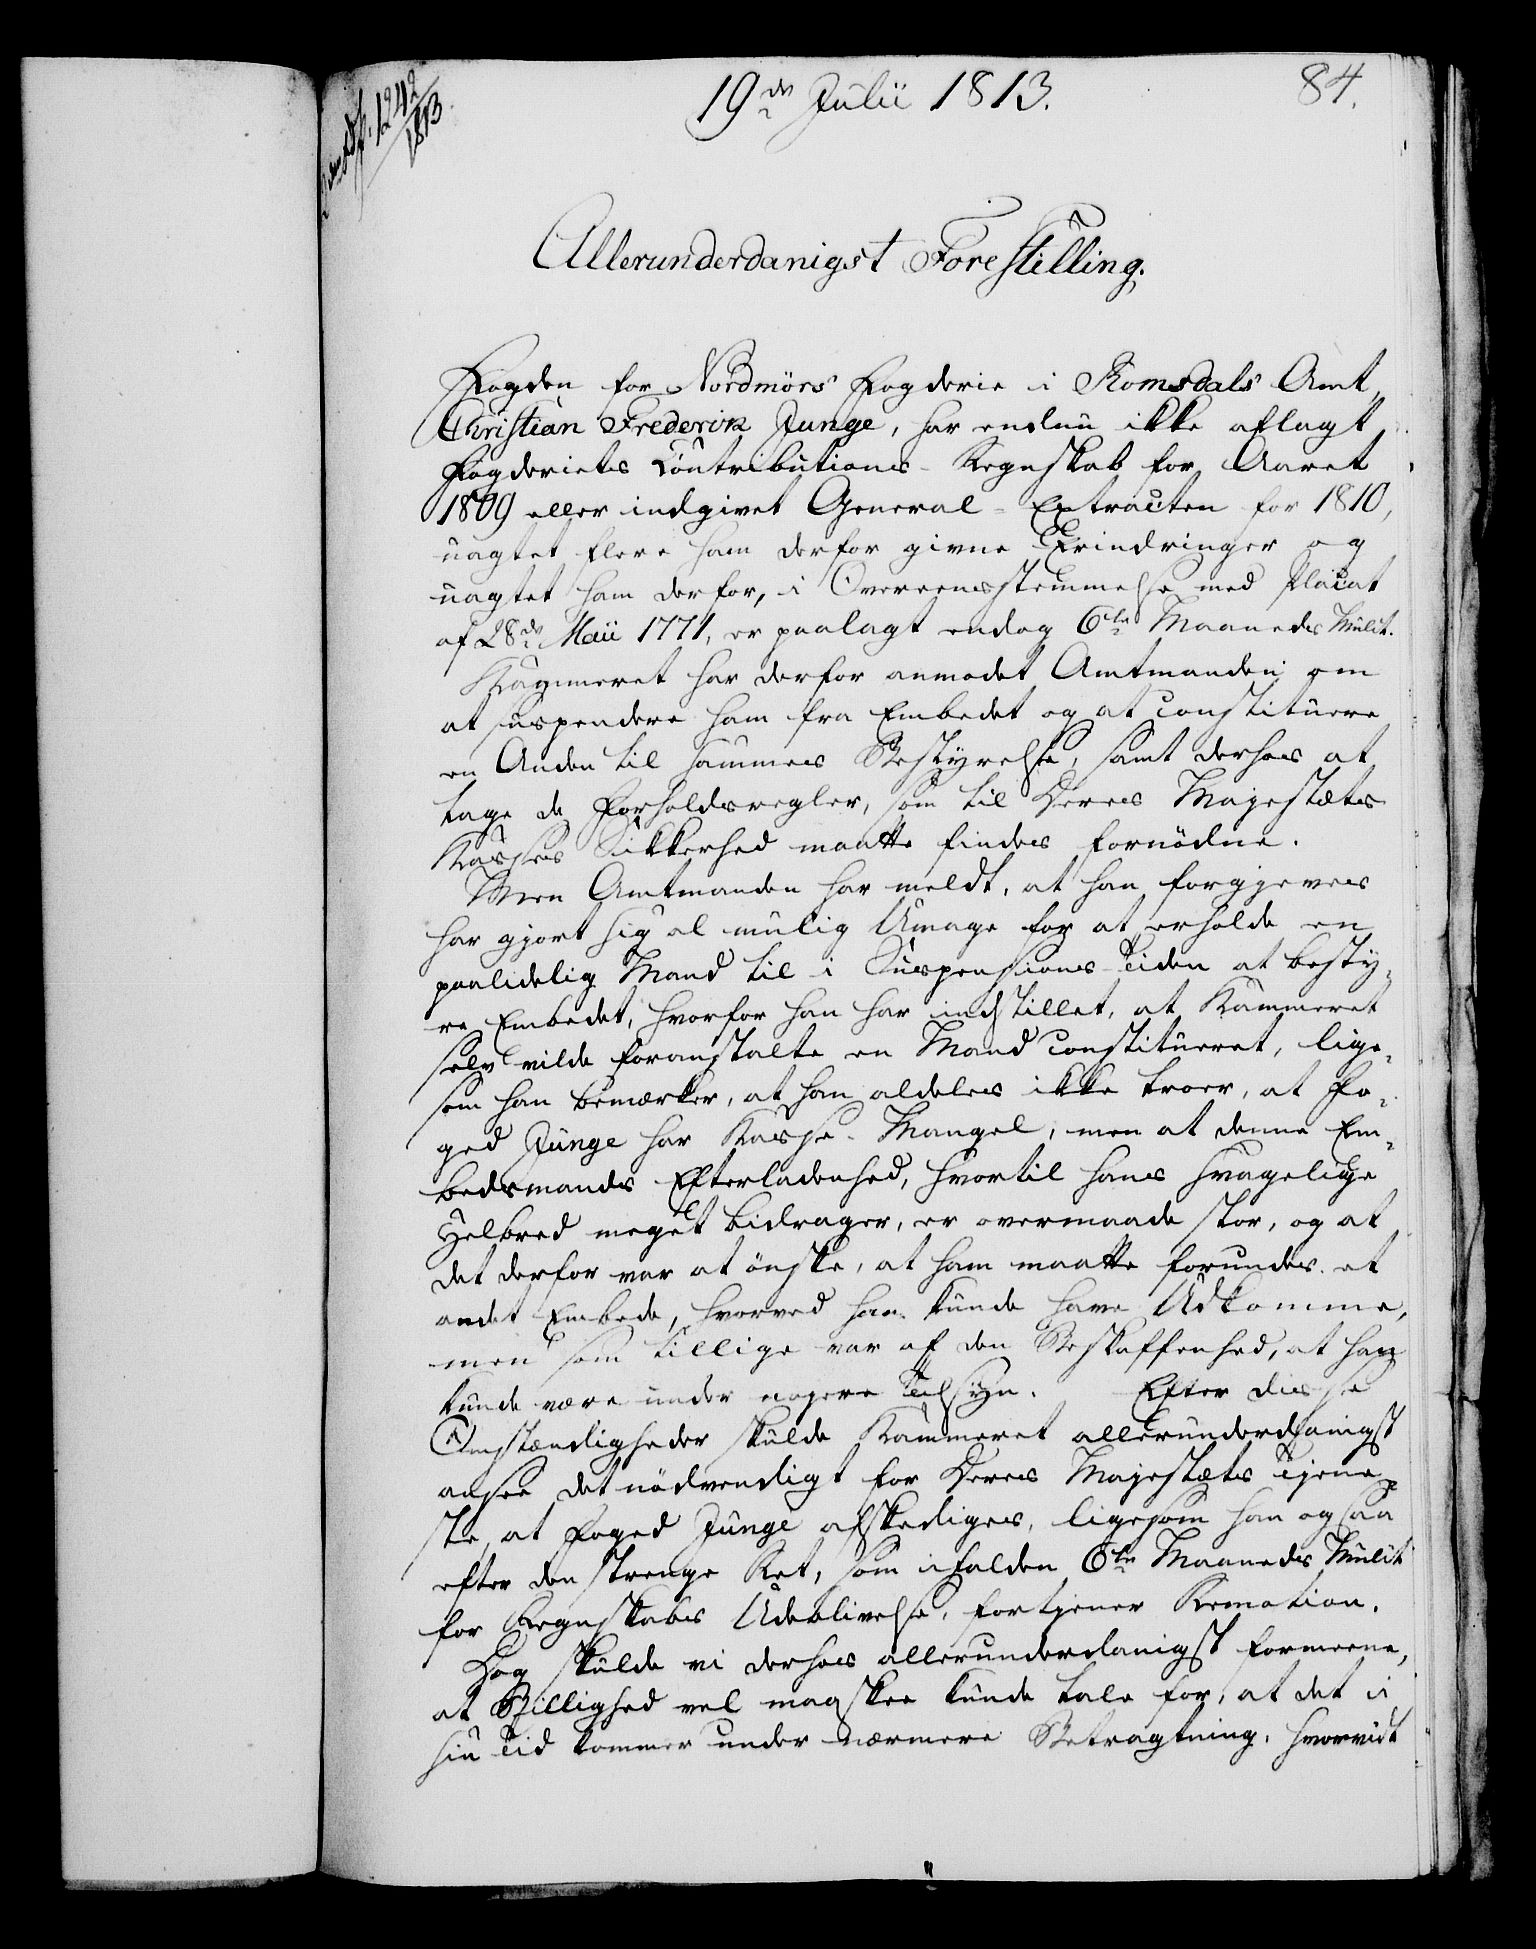 1242
1813
19de Julii 1813.
84.
Allerunderdanigst Forestilling.
Fogden for Nordmörs Fogderie i Romsdals Amt,
Christian Frederik Junge, har endnu ikke aflagt
Fogderiets Contributions-Regnskab for Aaret
1809 eller indgivet General-Extracten for 1810,
uagtet flere ham derfor givne Erindringer og
uagtet ham derfor, i Overeensstemmelse med Placat
af 28de Maii 1771, er paalagt endog 6te Maaneds Mulct.
Kammeret har derfor anmodet Amtmanden om
at suspendere ham fra Embedet og at constituere
en Anden til sammes Bestyrelse, samt derhos at
tage de Forholdsregler, som til Deres Majestæts
Kasses Sikkerhed maatte findes fornödne.
Men Amtmanden har meldt, at han forgjeves
har gjort sig al mulig Umage for at erholde en
paalidelig Mand til i Suspensions-Tiden at besty-
re Embedet, hvorfor han har indstillet, at Kammeret
selv vilde foranstalte en Mand constitueret, lige-
som han bemærker, at han aldeles ikke troer, at Fo-
ged Junge har Kasse-Mangel, men at denne Em-
bedsmands Efterladenhed, hvortil hans svagelige
Helbred meget bidrager, er overmaade stor, og at
det derfor var at önske, at ham maatte forundes et
andet Embede, hvorved han kunde have Udkomme,
men som tillige var af den Beskaffenhed, at han
kunde være under nøjere Tilsyn. Efter disse
Omstændigheder skulde Kammeret allerunderdanigst
ansee det nödvendigt for Deres Majestæts Tjene-
ste, at Foged Junge afskediges, ligesom han ogsaa
efter den strenge Ret, som ifalden 6te Maaneds Mulct
for Regnskabs Udeblivelse, fortjener Remotion.
Dog skulde vi derhos allerunderdanigst formeene,
at Billighed vel maaskee kunde tale for, at det i
sin Tid kommer under nærmere Betragtning, hvorvidt